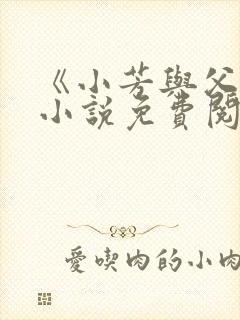 《小芳與父
小說免費閱
愛喫肉的小肉